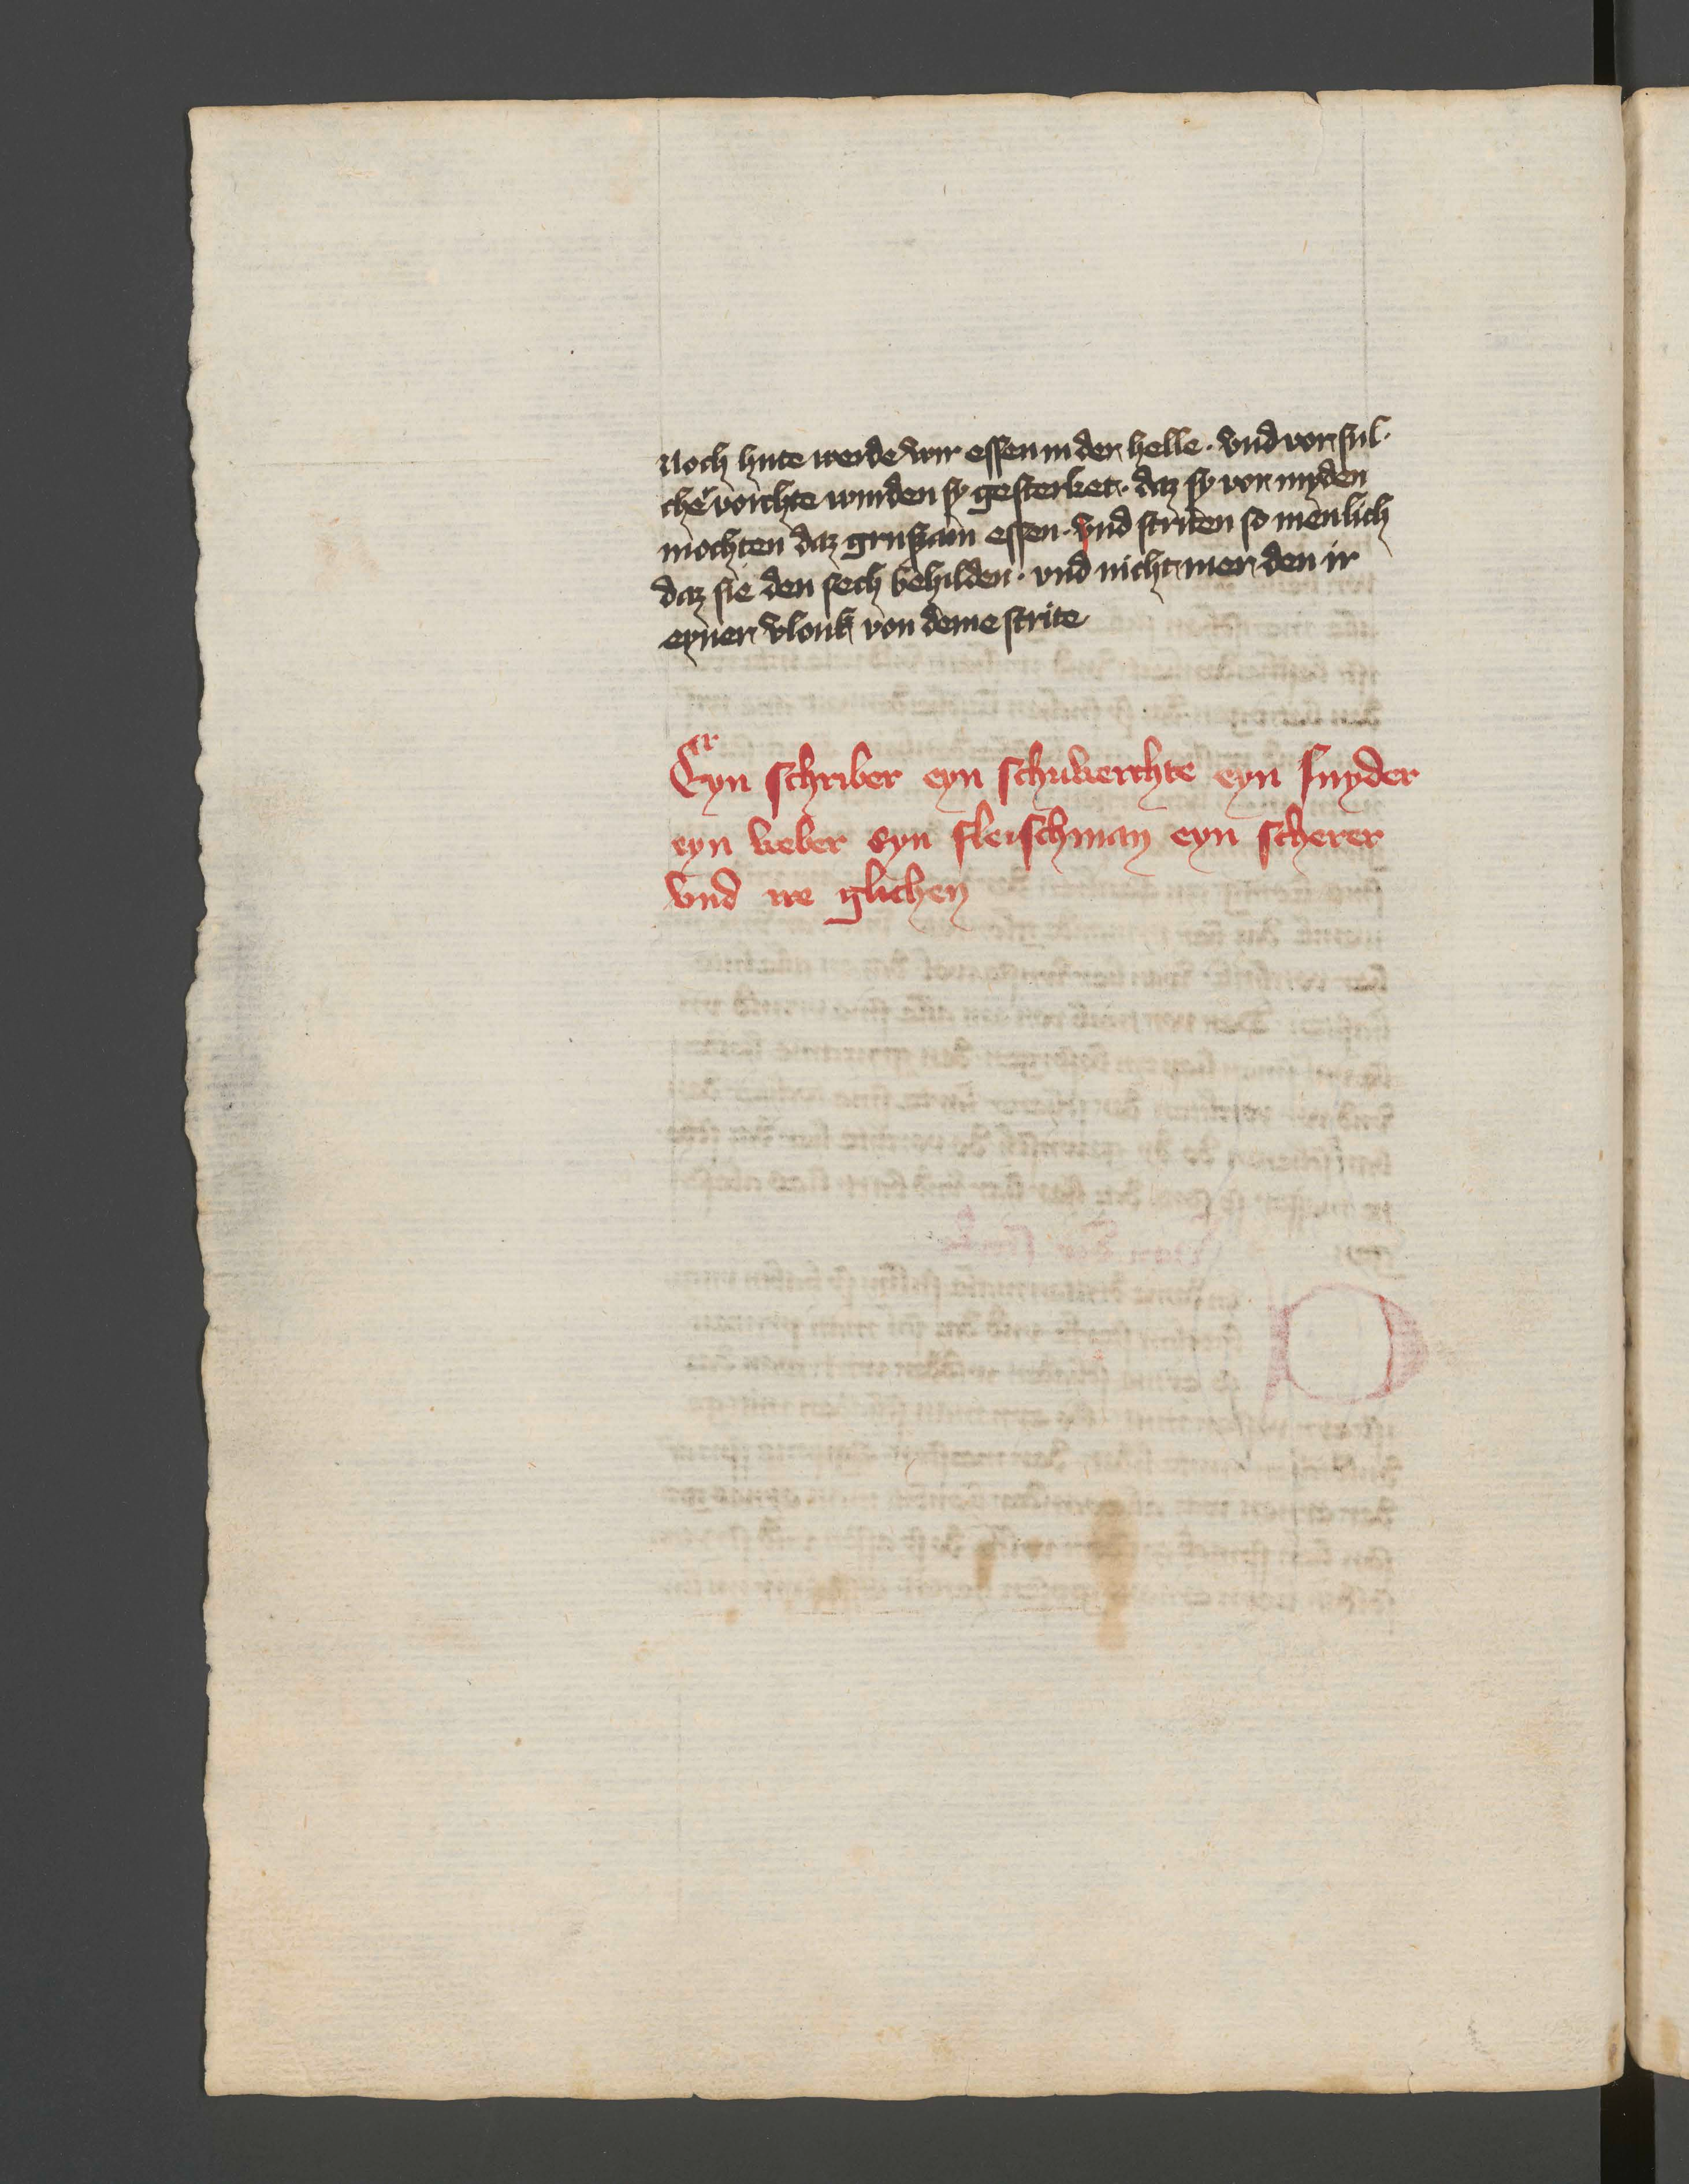 Noch hute werde wir essen in der helle · vnd von sul·
cher vorchte wurden sy gesterket · daz sy vor myden
mochten daz grusam essen · vnd striten so menlich
daz sie den sech behilden · vnd nicht mer den ir
eyner vlouk von deme strite
Eyn schriber eyn schuwerchte eyn snyder
eyn weber eyn fleischman eyn scherer
vnd ire glichen